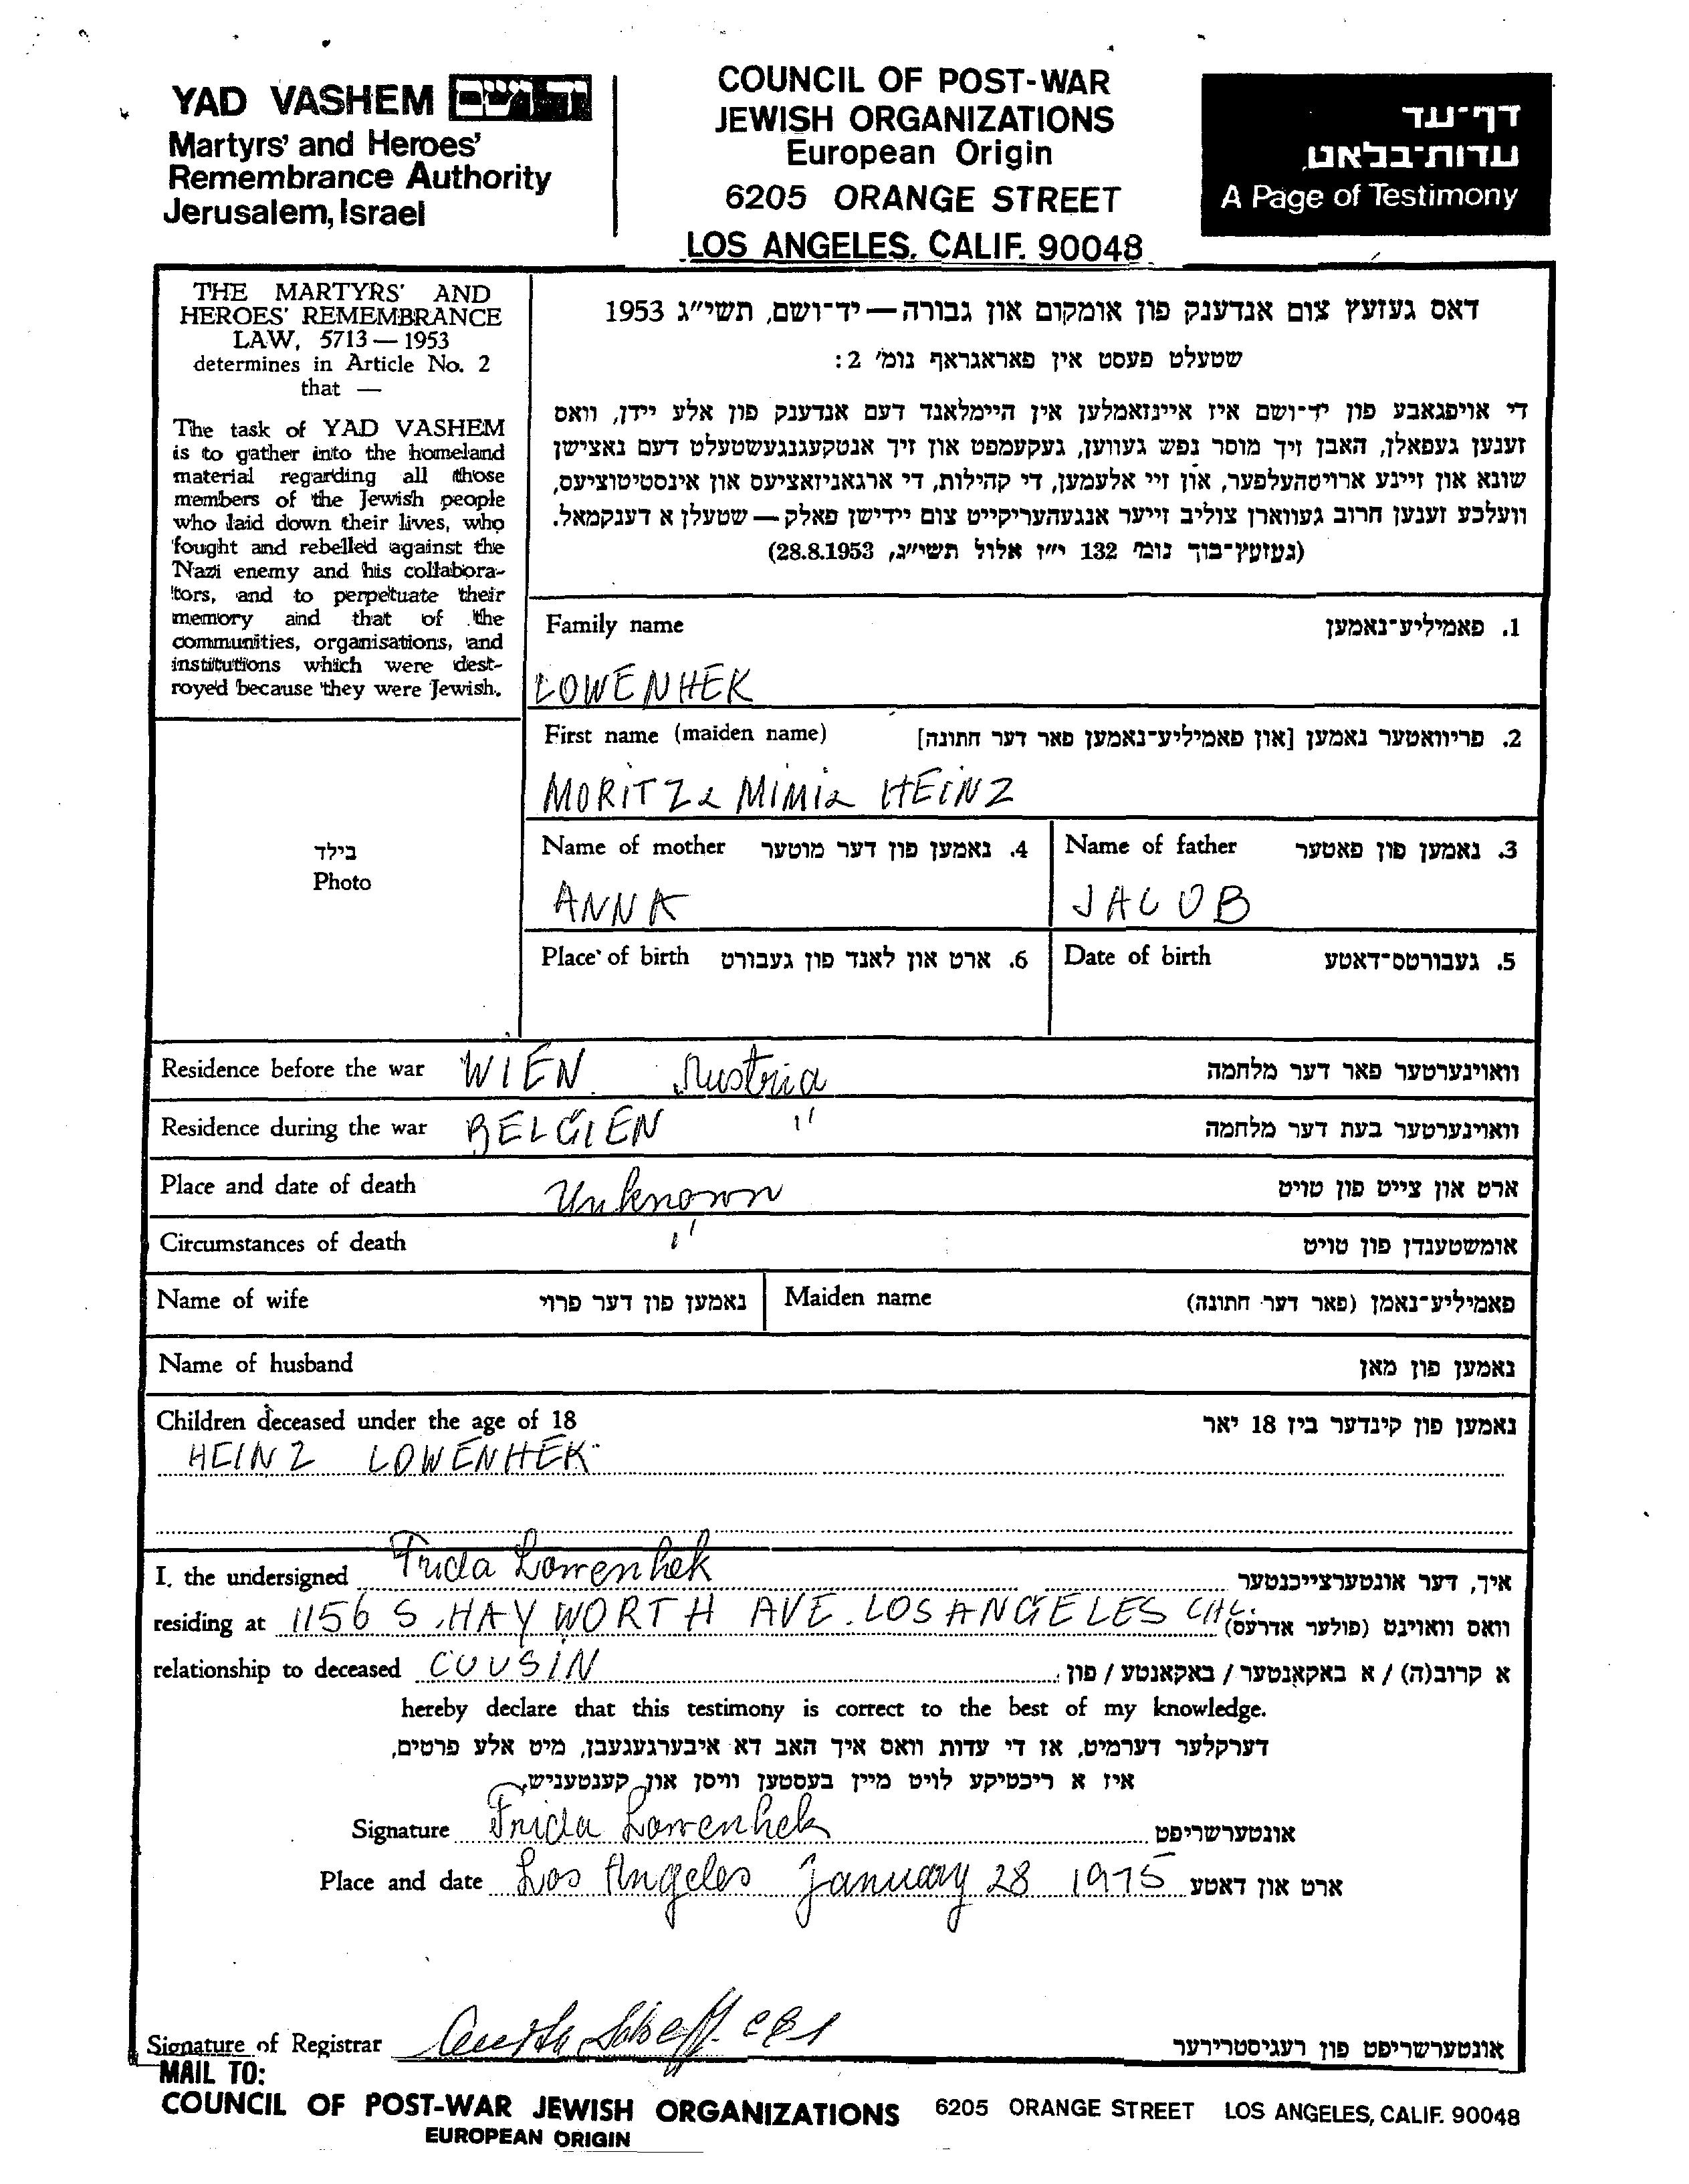 YAD VASHEM יד ושם
Martyrs' and Heroes'
Remembrance Authority
Jerusalem, Israel
COUNCIL OF POST-WAR
JEWISH ORGANIZATIONS
European Origin
6205 ORANGE STREET
LOS ANGELES, CALIF. 90048
דף־עד
עדות־בלאט
A Page of Testimony
THE MARTYRS' AND
HEROES' REMEMBRANCE
LAW, 5713 — 1953
determines in Article No. 2
that —
The task of YAD VASHEM
is to gather into the homeland
material regarding all those
members of the Jewish people
who laid down their lives, who
fought and rebelled against the
Nazi enemy and his collabora-
tors, and to perpetuate their
memory and that of the
communities, organisations, and
institutions which were dest-
royed because they were Jewish.
דאס געזעץ צום אנדענק פון אומקום און גבורה — יד־ושם, תשי"ג 1953
שטעלט פעסט אין פאראגראף נומ' 2:
די אויפגאבע פון יד־ושם איז איינזאמלען אין היימלאנד דעם אנדענק פון אלע יידן, וואס
זענען געפאלן, האבן זיך מוסר נפש געווען, געקעמפט און זיך אנטקעגנגעשטעלט דעם נאצישן
שונא און זיינע ארויסהעלפער, און זיי אלעמען, די קהילות, די ארגאניזאציעס און אינסטיטוציעס,
וועלכע זענען חרוב געווארן צוליב זייער אנגעהעריקייט צום יידישן פאלק — שטעלן א דענקמאל.
(געזעץ־בוך נומ' 132 י"ז אלול תשי"ג, 28.8.1953)
Family name 1. פאמיליע־נאמען
LOWENHEK
First name (maiden name) 2. פריוואטער נאמען [און פאמיליע־נאמען פאר דער חתונה]
MORITZ & MIMI & HEINZ
Name of mother 4. נאמען פון דער מוטער
ANNA
Name of father 3. נאמען פון פאטער
JACOB
Place of birth 6. ארט און לאנד פון געבורט
Date of birth 5. געבורטס־דאטע
בילד
Photo
Residence before the war WIEN Austria וואוינערטער פאר דער מלחמה
Residence during the war BELGIEN " וואוינערטער בעת דער מלחמה
Place and date of death Unknown ארט און צייט פון טויט
Circumstances of death " אומשטענדן פון טויט
Name of wife נאמען פון דער פרוי
Maiden name פאמיליע־נאמן (פאר דער חתונה)
Name of husband נאמען פון מאן
Children deceased under the age of 18 נאמען פון קינדער ביז 18 יאר
HEINZ LOWENHEK
I, the undersigned Frida Lowenhek איך, דער אונטערצייכנטער
residing at 1156 S. HAYWORTH AVE. LOS ANGELES CAL. וואס וואוינט (פולער אדרעס)
relationship to deceased COUSIN א קרוב(ה) / א באקאנטער / באקאנטע / פון
hereby declare that this testimony is correct to the best of my knowledge.
דערקלער דערמיט, אז די עדות וואס איך האב דא איבערגעגעבן, מיט אלע פרטים,
איז א ריכטיקע לויט מיין בעסטען וויסן און קענטעניש.
Signature Frida Lowenhek אונטערשריפט
Place and date Los Angeles January 28 1975 ארט און דאטע
Signature of Registrar אונטערשריפט פון רעגיסטרירער
MAIL TO:
COUNCIL OF POST-WAR JEWISH ORGANIZATIONS 6205 ORANGE STREET LOS ANGELES, CALIF. 90048
EUROPEAN ORIGIN